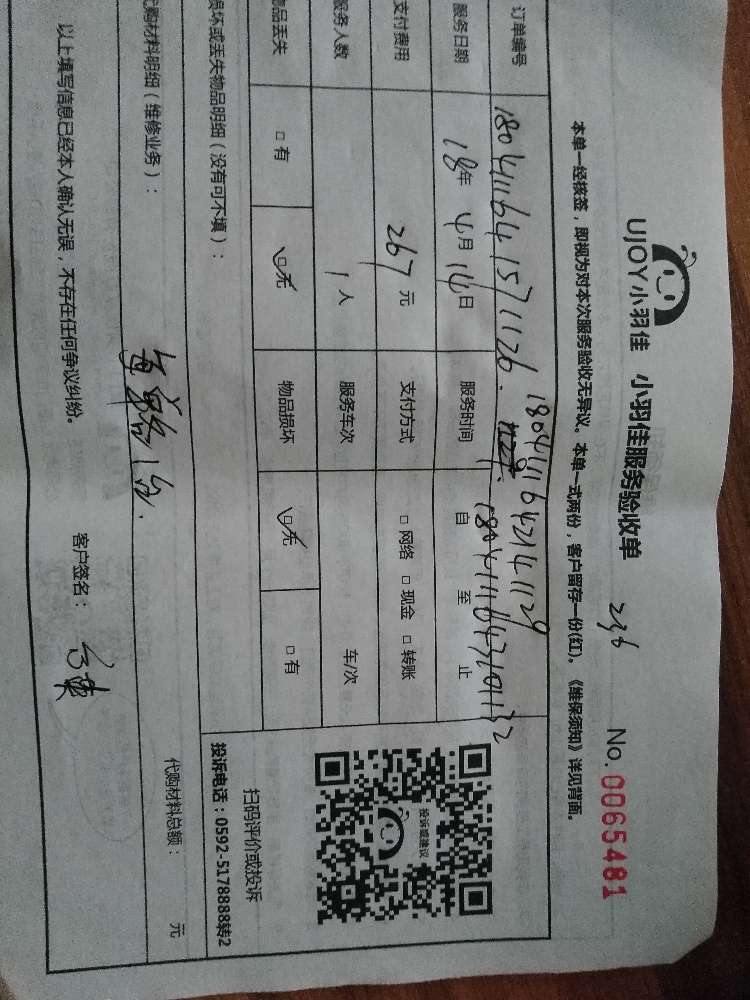 UJOY小羽佳 小羽佳服务验收单 236 No.0065481
本单一经核签，即视为对本次服务验收无异议。本单一式两份，客户留存一份(红)。《维保须知》详见背面。
订单编号 180411641571126. 1804111642141129
1804111643101132
服务日期 18年 4月 14日 服务时间 自 至 止
支付费用 267元 支付方式 □ 网络 □ 现金 □ 转账
服务人数 1人 服务车次 车/次
物品丢失 □ 有 ☑ 无 物品损坏 ☑ 无 □ 有
投诉或建议
扫码评价或投诉
投诉电话：0592-5178888转2
损坏或丢失物品明细（没有可不填）：
代购材料明细（维修业务）： 代购材料总额： 元
以上填写信息已经本人确认无误，不存在任何争议纠纷。 客户签名：